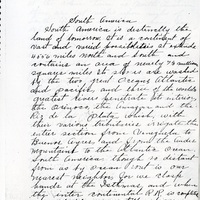 South America
South America is distinctly the
land of tomorrow. It is a continent of
vast and varied possibilities. It extends
4500 miles north and South and
contains an area of nearly 7½ million
square miles. Its shores are washed
by the two great Oceans Atlantic
and pacific, and three of the worlds
greatest rivers penetrate its interior
the Orinoco, the Amazon and the
Rio de la Plata which, with
their various tributaries irrigate the
entire section from Venezuela to
Buenos Ayres and from the Andes
mountains to the Atlantic Ocean.
South America though so distant
from us by ocean travel is our
nearest neighbor. For we clasp
hands at the Isthmus, and when
the entire continental R.R. is completed